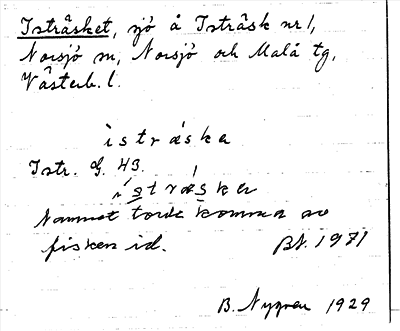 Isträsket, sjö å Isträsk nr 1,
Norsjö sn, Norsjö och Malå tg,
Västerb. l.
ìstrǽska
Istr. G. 43.
ístrǽska
Namnet torde komma av
fisken id.
BN. 1971
B. Nygren 1929